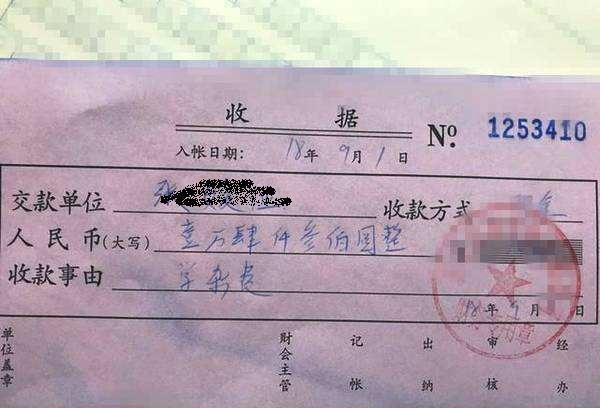 收 据 No. 1253410
入帐日期: 18年9月1日
交款单位 收款方式
人民币(大写) 壹万肆仟叁佰圆整
收款事由 学杂费
18年9月1日
单位盖章 财会主管 记帐 出纳 审核 经办